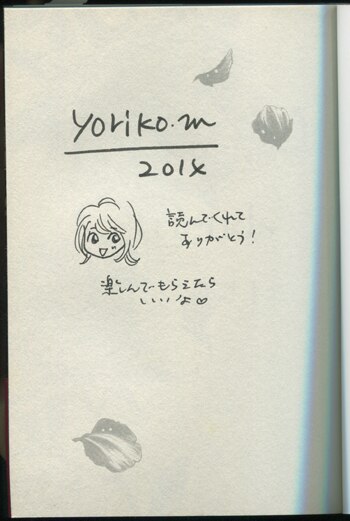 yoriko.m
2014
読んでくれて
ありがとう!
楽しんでもらえたら
いいな♡